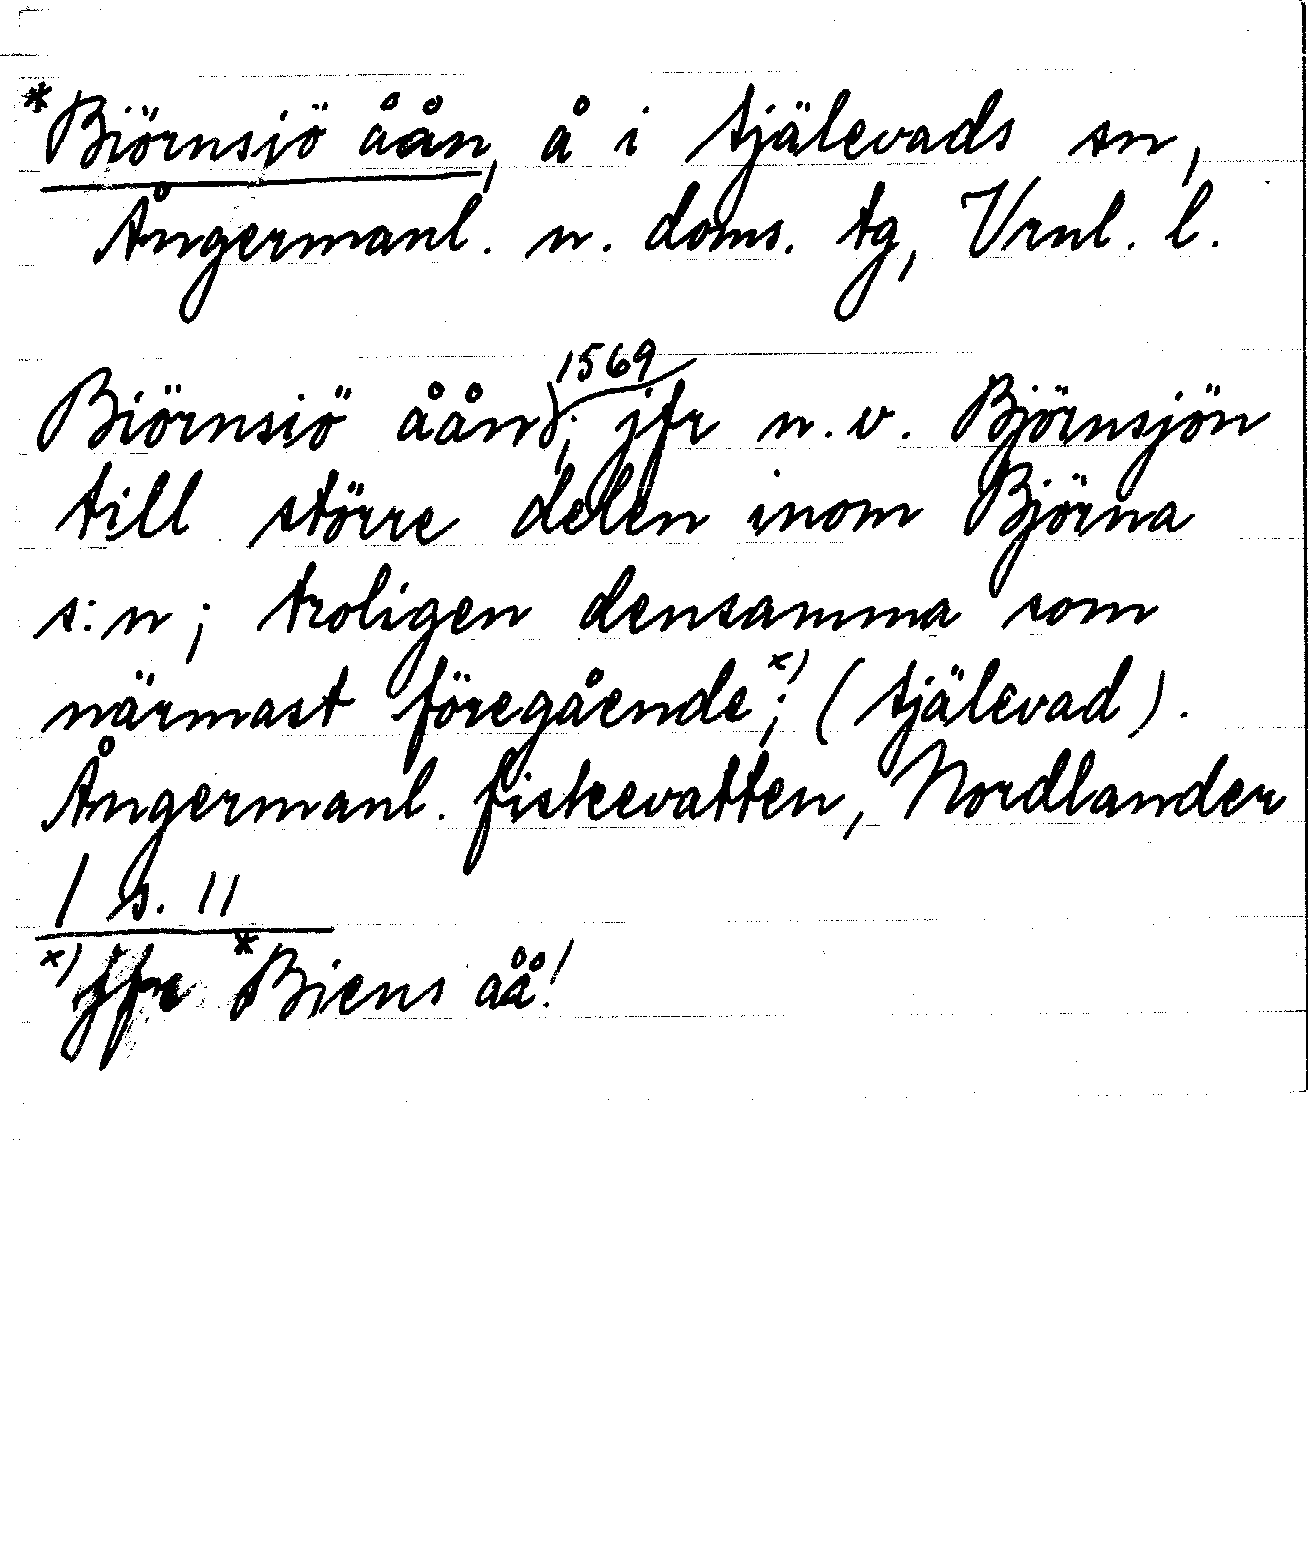 *Biörnsiö åån, å i Själevads sn,
Ångermanl. n. doms. tg, Vrnl. l.
1569
Biörnsiö åån; jfr n.v. Björnsjön
till större delen inom Björna
s:n; troligen densamma som
närmast föregående x); (Själevad).
Ångermanl. fiskevatten, Nordlander
I s. 11
x) Jfr *Biens åå!